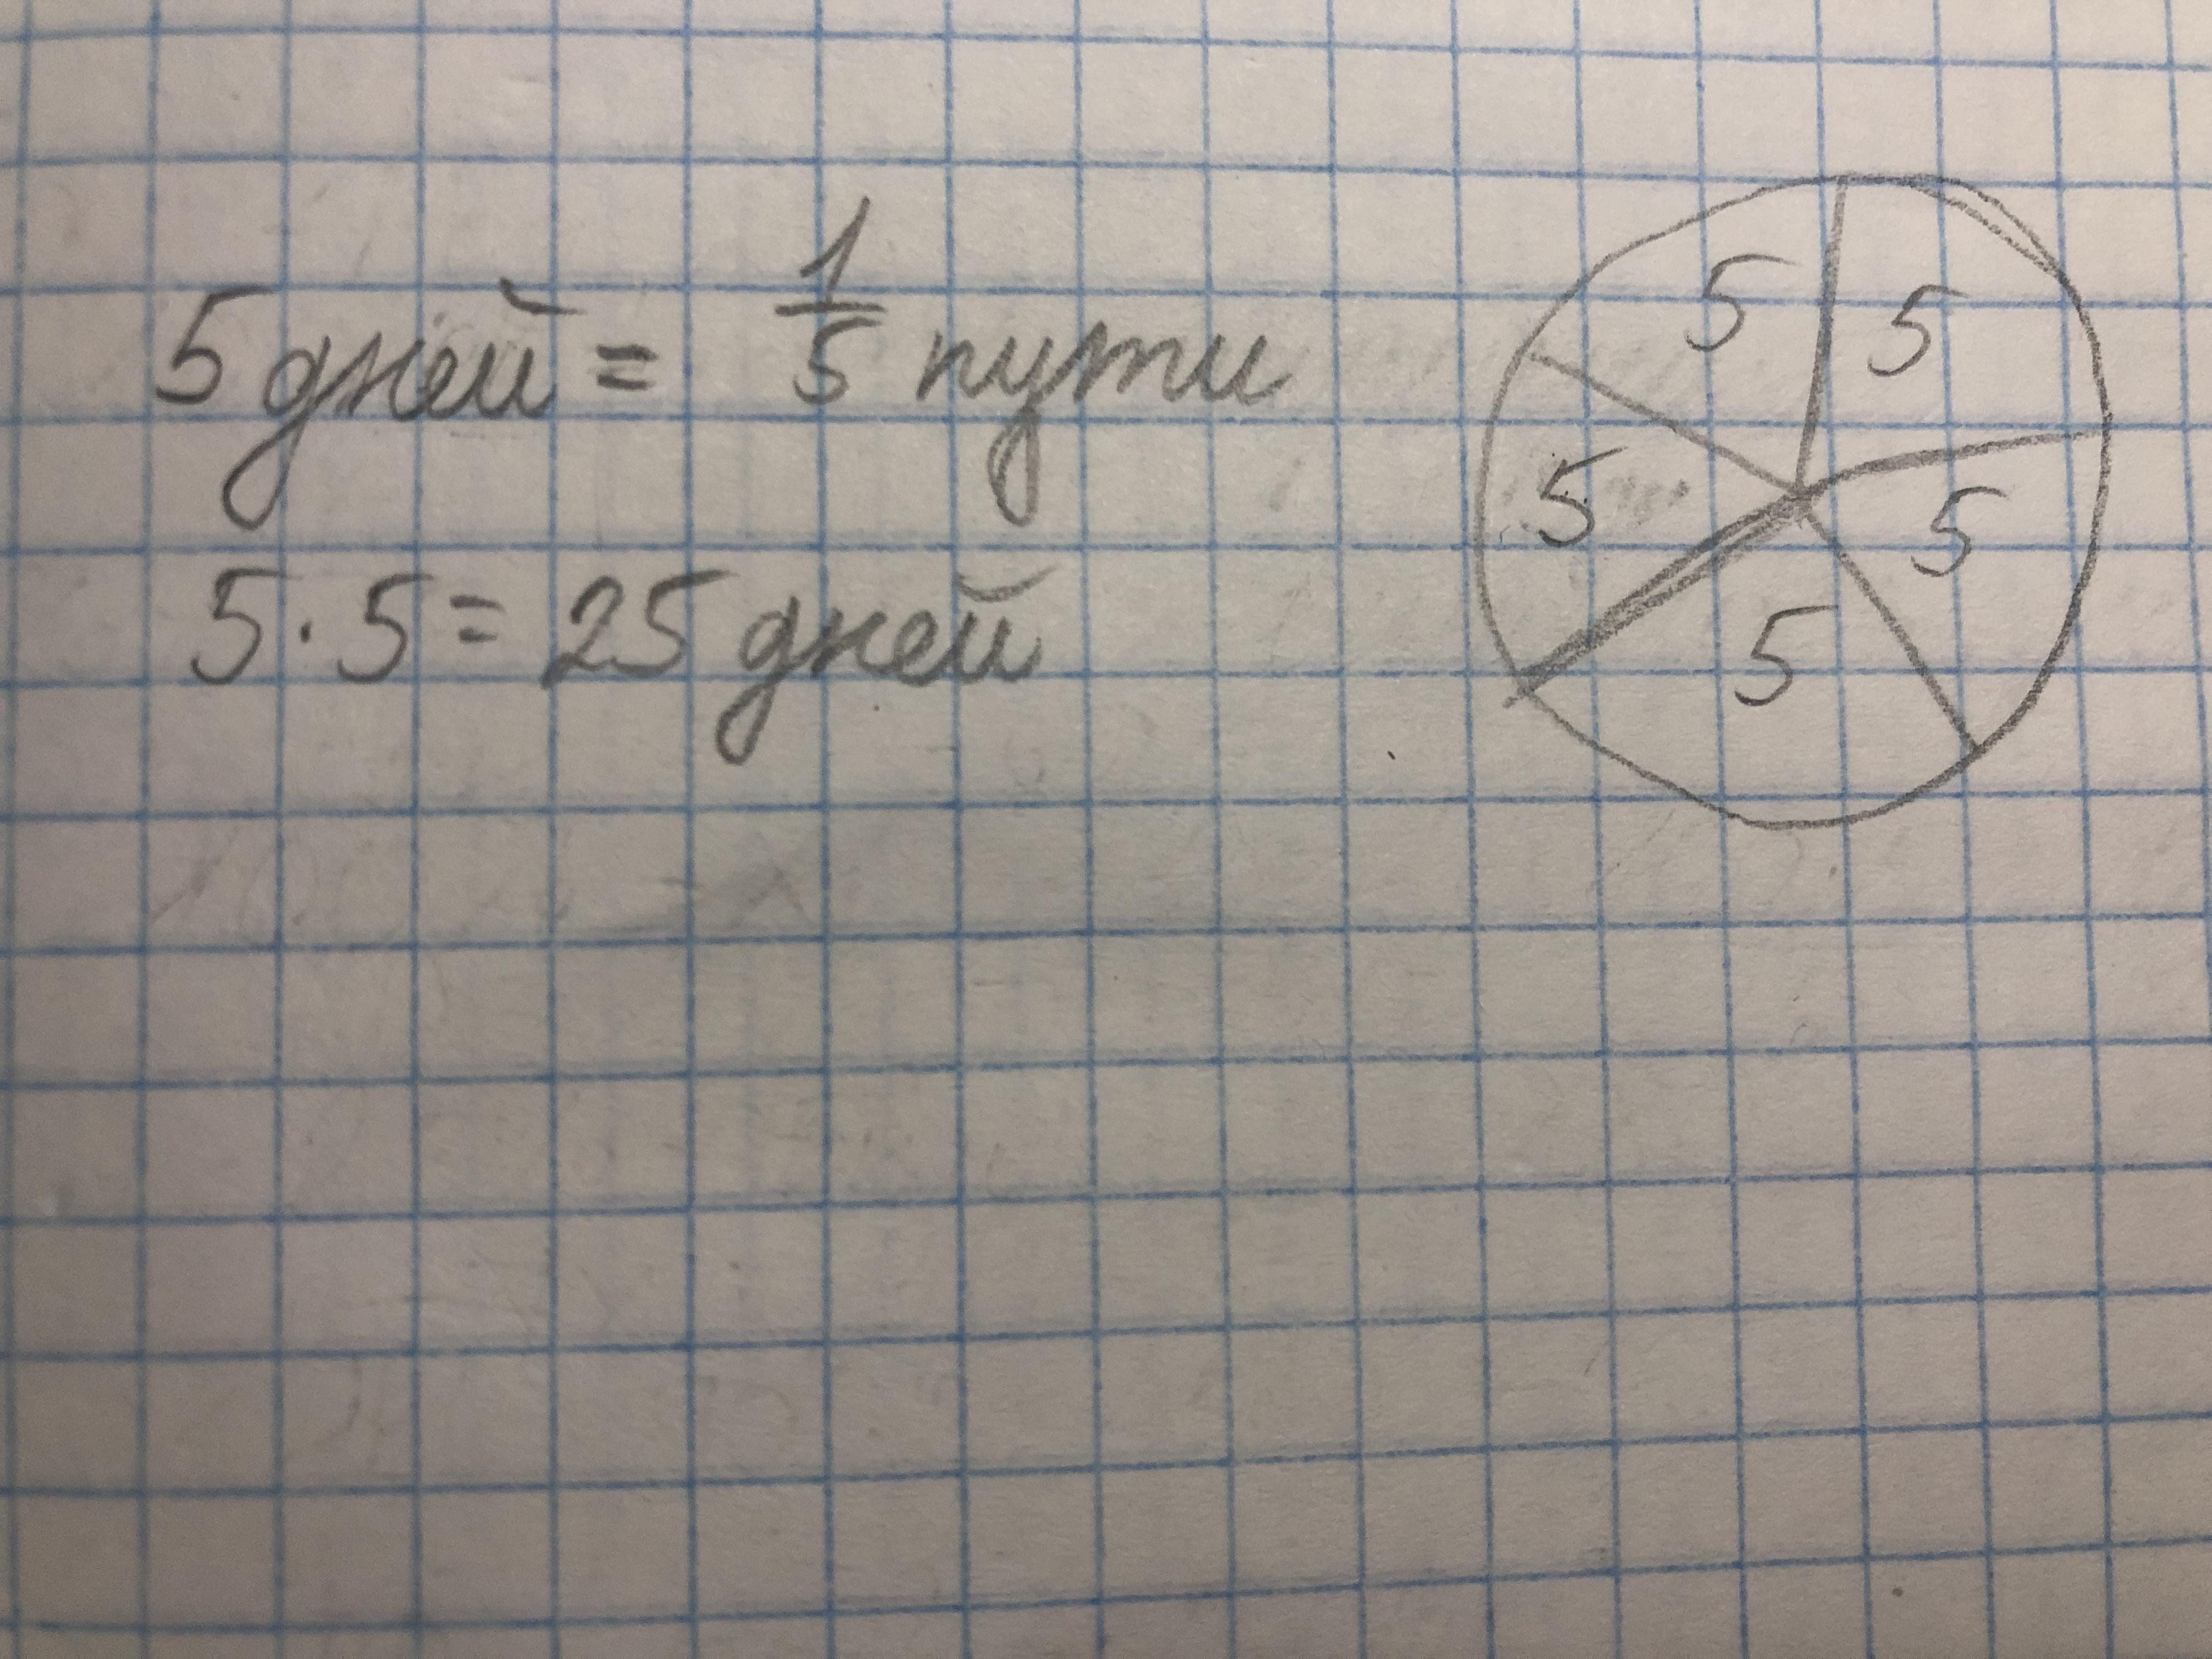 5 дней = 1/5 пути
5 · 5 = 25 дней
5 5
5 5
5